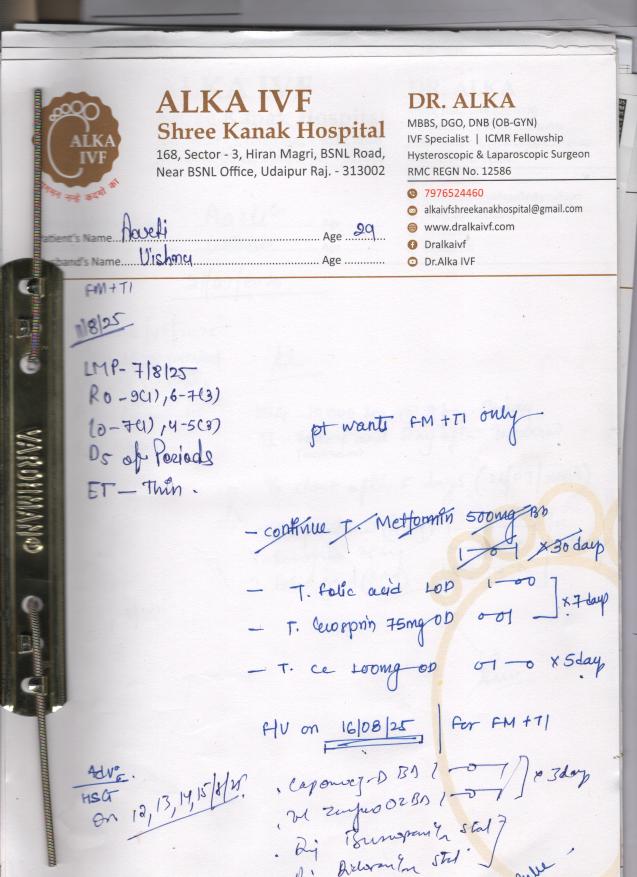 ALKA IVF
Shree Kanak Hospital
168, Sector - 3, Hiran Magri, BSNL Road,
Near BSNL Office, Udaipur Raj. - 313002
DR. ALKA
MBBS, DGO, DNB (OB-GYN)
IVF Specialist | ICMR Fellowship
Hysteroscopic & Laparoscopic Surgeon
RMC REGN No. 12586
7976524460
alkaivfshreekanakhospital@gmail.com
www.dralkaivf.com
Dralkaivf
Dr.Alka IVF
ALKA
IVF
नन्हें कदमों का
atient's Name Age 29
band's Name Vishnu Age
FM + TI
11/8/25
LMP - 7/8/25
RO - 9(1), 6-7(3)
LO - 7(1), 4-5(3)
D5 of Periods
ET - Thin.
pt wants FM + TI only
- continue T. Metformin 500mg BD
1-0-1 x 30 days
- T. folic acid 1OD 1-0-0
- T. Ecosprin 75mg OD 0-0-1
x 7 days
- T. CC 100mg OD 0-1-0 x 5 days
F/U on 16/08/25 for FM + TI
Adv.
HSG
on 12, 13, 14, 15/8/25
BD 1-0-1
BD 1-0-1
x 3 days
Inj stat
Inj stat
VARDHMAAN